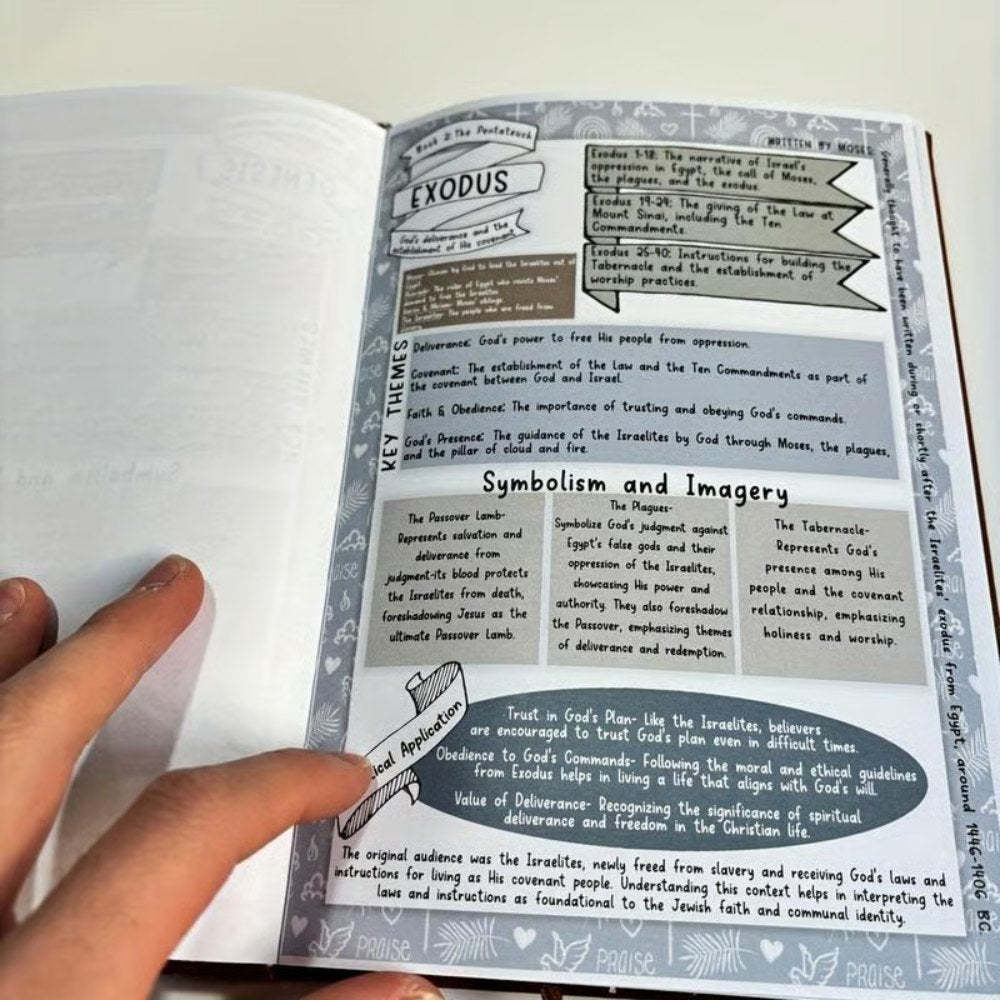 Book 2: The Pentateuch
EXODUS
God's deliverance and the
establishment of His covenant
WRITTEN BY MOSES
Generally thought to have been written during or shortly after the Israelites' exodus from Egypt, around 1446-1406 BC
Exodus 1-18: The narrative of Israel's
oppression in Egypt, the call of Moses,
the plagues, and the exodus.
Exodus 19-24: The giving of the Law at
Mount Sinai, including the Ten
Commandments.
Exodus 25-40: Instructions for building the
Tabernacle and the establishment of
worship practices.
Moses: Chosen by God to lead the Israelites out of
Egypt
Pharaoh: The ruler of Egypt who resists Moses'
demand to free the Israelites
Aaron & Miriam: Moses' siblings
The Israelites: The people who are freed from
KEY THEMES
Deliverance: God's power to free His people from oppression.
Covenant: The establishment of the Law and the Ten Commandments as part of
the covenant between God and Israel.
Faith & Obedience: The importance of trusting and obeying God's commands.
God's Presence: The guidance of the Israelites by God through Moses, the plagues,
and the pillar of cloud and fire.
Symbolism and Imagery
The Passover Lamb-
Represents salvation and
deliverance from
judgment-its blood protects
the Israelites from death,
foreshadowing Jesus as the
ultimate Passover Lamb.
The Plagues-
Symbolize God's judgment against
Egypt's false gods and their
oppression of the Israelites,
showcasing His power and
authority. They also foreshadow
the Passover, emphasizing themes
of deliverance and redemption.
The Tabernacle-
Represents God's
presence among His
people and the covenant
relationship, emphasizing
holiness and worship.
ical Application
Trust in God's Plan- Like the Israelites, believers
are encouraged to trust God's plan even in difficult times.
Obedience to God's Commands- Following the moral and ethical guidelines
from Exodus helps in living a life that aligns with God's will.
Value of Deliverance- Recognizing the significance of spiritual
deliverance and freedom in the Christian life.
The original audience was the Israelites, newly freed from slavery and receiving God's laws and
instructions for living as His covenant people. Understanding this context helps in interpreting the
laws and instructions as foundational to the Jewish faith and communal identity.
PRAISE
PRAISE
PRAISE